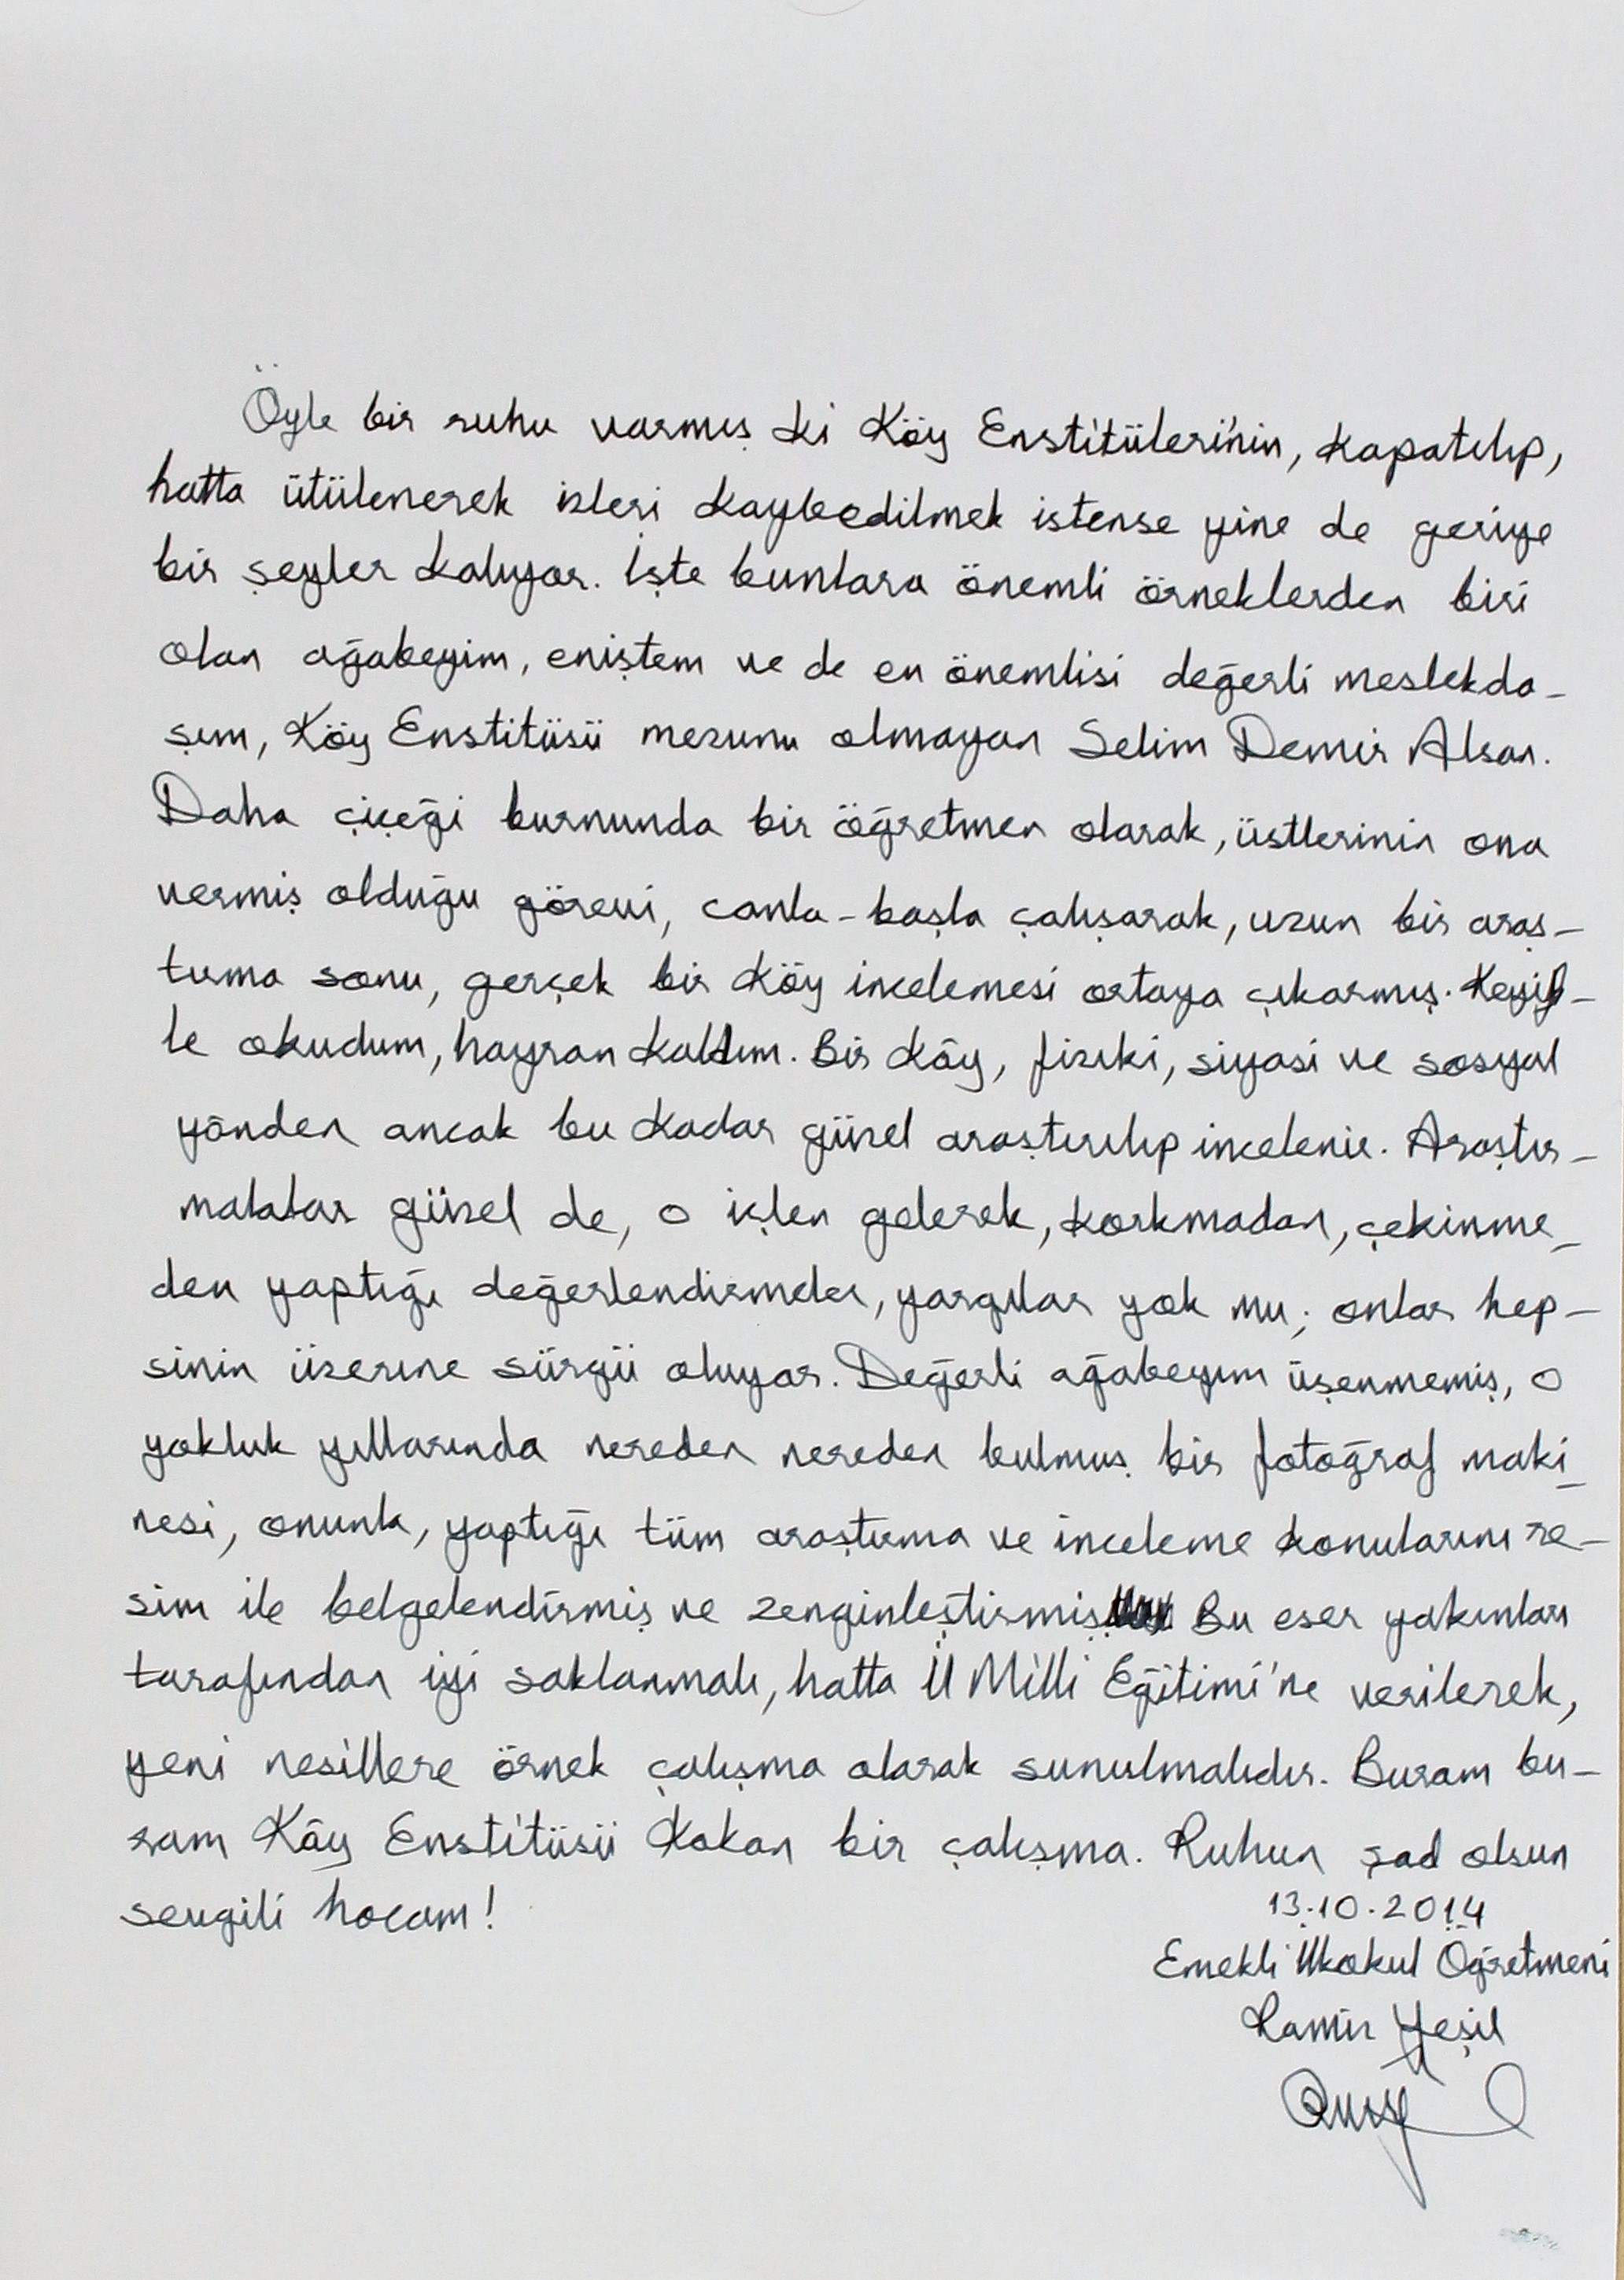 Öyle bir ruhu varmış ki Köy Enstitüleri'nin, kapatılıp,
hatta ütülenerek izleri kaybedilmek istense yine de geriye
bir şeyler kalıyor. İşte bunlara önemli örneklerden biri
olan ağabeyim, eniştem ve de en önemlisi değerli meslekda-
şım, Köy Enstitüsü mezunu olmayan Selim Demir Alsan.
Daha çiçeği burnunda bir öğretmen olarak, üstlerinin ona
vermiş olduğu görevi, canla-başla çalışarak, uzun bir araş-
tırma sonu, gerçek bir köy incelemesi ortaya çıkarmış. Keyif-
le okudum, hayran kaldım. Bir köy, fiziki, siyasi ve sosyal
yönden ancak bu kadar güzel araştırılıp incelenir. Araştır-
malalar güzel de, o içten gelerek, korkmadan, çekinme-
den yaptığı değerlendirmeler, yargılar yok mu; onlar hep-
sinin üzerine sürgü oluyor. Değerli ağabeyim üşenmemiş, o
yokluk yıllarında nereden nereden bulmuş bir fotoğraf maki-
nesi, onunla, yaptığı tüm araştırma ve inceleme konularını re-
sim ile belgelendirmiş ve zenginleştirmiş. Bu eser yakınları
tarafından iyi saklanmalı, hatta İl Milli Eğitimi'ne verilerek,
yeni nesillere örnek çalışma olarak sunulmalıdır. Buram bu-
ram Köy Enstitüsü kokan bir çalışma. Ruhun şad olsun
sevgili hocam!
13.10.2014
Emekli İlkokul Öğretmeni
Ramiz Yeşil